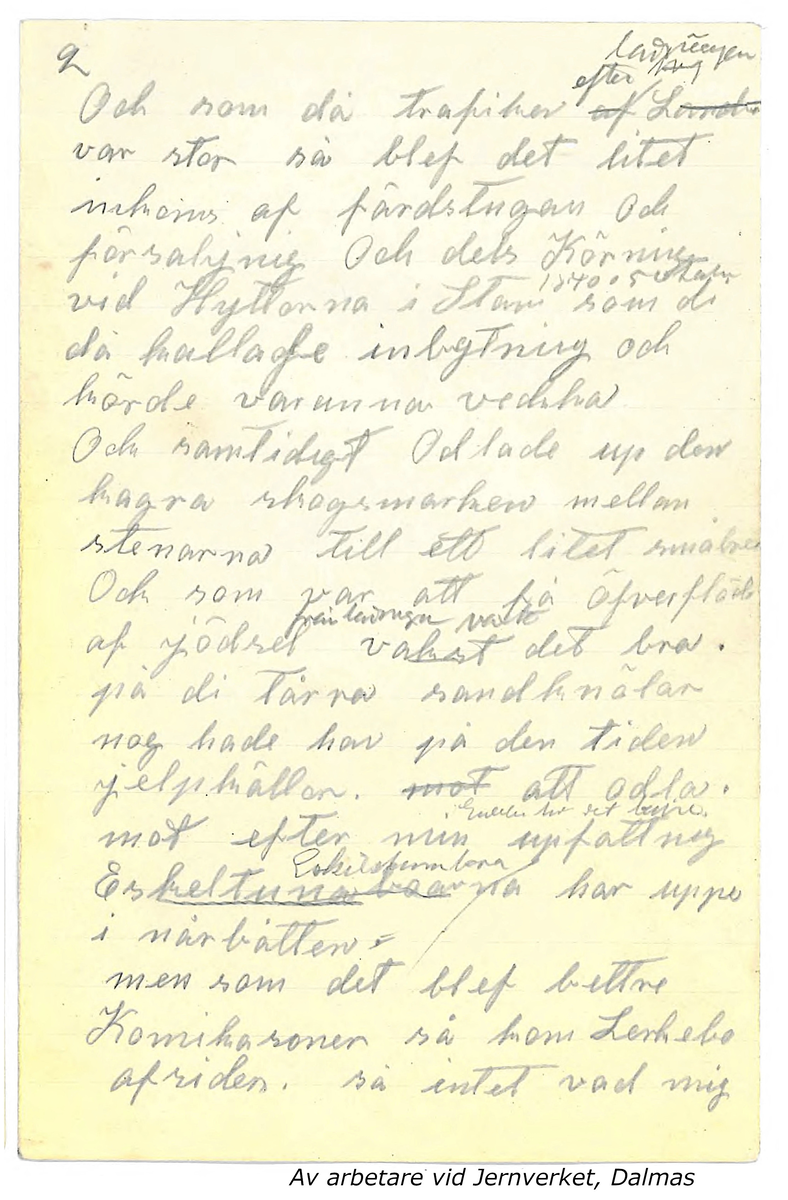 2
efter
Och som då trafiken af
var stor så blef det litet
inkoms af färdstugan Och
försaljnig Och dels Körning
vid Hyttorna i som di
då kallade inbgtning och
körde varanna vecka
Och samtidigt Odlade up den
hagra skogsmarken mellan
stenarna till ett litet
Och som var att få öfverflöd
från ladugn
af jödsel vakst det bra.
på di tårra sandknålar
nog hade han på den tiden
jelpkällor. mot att odla.
mot efter min upfattneg
Eskeltuna na har uppe
i når båtten
men som det blef bettre
Komikasoner så kom Lerkebo
afsiden. så intet vad mig
Av arbetare vid Jernverket, Dalmas